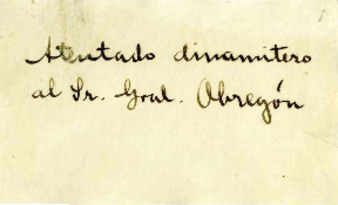 Atentado dinamitero
al Sr. Gral. Obregón